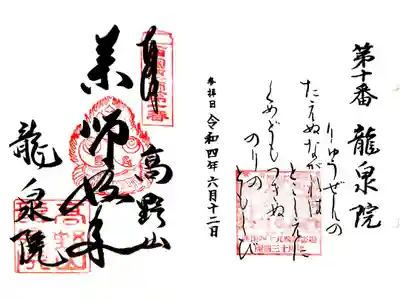 第十番 龍泉院
りゅうぜんの
たえぬながれは
とこしえに
くめどもつきぬ
のりの
ともしび
参拝日 令和四年六月十二日
高野山
奉拝
薬師如来
龍泉院